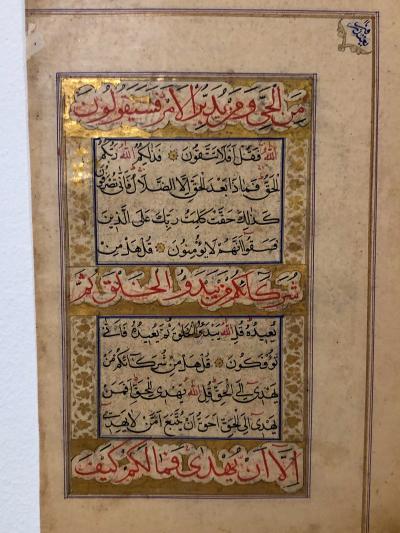 مِنَ الْحَيِّ وَمَنْ يُدَبِّرُ الْاَمْرَ فَسَيَقُولُونَ
اللّٰهُ فَقُلْ اَفَلَا تَتَّقُونَ ۞ فَذٰلِكُمُ اللّٰهُ رَبُّكُمُ
الْحَقُّ فَمَاذَا بَعْدَ الْحَقِّ اِلَّا الضَّلَالُ فَاَنّٰى تُصْرَفُونَ
كَذٰلِكَ حَقَّتْ كَلِمَتُ رَبِّكَ عَلَى الَّذِينَ
فَسَقُوا اَنَّهُمْ لَا يُؤْمِنُونَ ۞ قُلْ هَلْ مِنْ
شُرَكَائِكُمْ مَنْ يَبْدَؤُا الْخَلْقَ ثُمَّ
يُعِيدُهُ قُلِ اللّٰهُ يَبْدَؤُا الْخَلْقَ ثُمَّ يُعِيدُهُ فَاَنّٰى
تُؤْفَكُونَ ۞ قُلْ هَلْ مِنْ شُرَكَائِكُمْ مَنْ
يَهْدِي اِلَى الْحَقِّ قُلِ اللّٰهُ يَهْدِي لِلْحَقِّ اَفَمَنْ
يَهْدِي اِلَى الْحَقِّ اَحَقُّ اَنْ يُتَّبَعَ اَمَّنْ لَا يَهِدِّي
اِلَّا اَنْ يُهْدٰى فَمَا لَكُمْ كَيْفَ